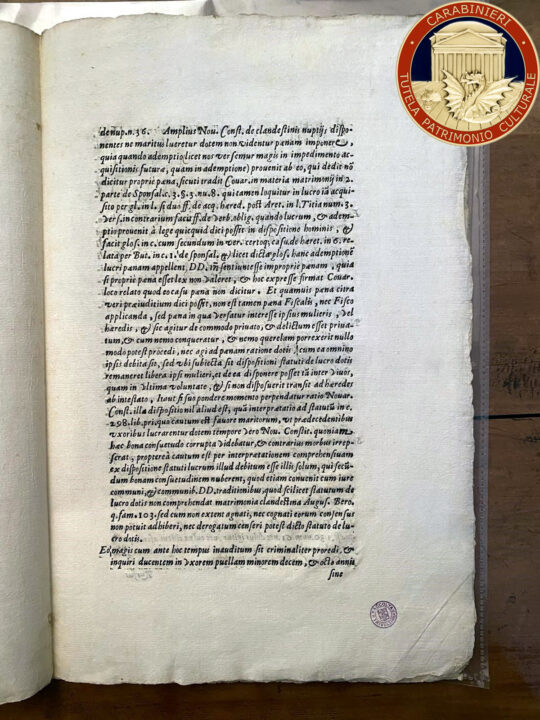 CARABINIERI
TUTELA PATRIMONIO CULTURALE
de nup. n. 36. Amplius Nou. Const. de clandestinis nuptijs dispo-
nentes ne maritus lucretur dotem non videntur pœnam imponere,
quia quando ademptio (licet nos versemur magis in impedimento ac-
quisitionis futura, quam in ademptione) prouenit ab eo, qui dedit nō
dicitur proprie pœna, sicuti tradit Couar. in materia matrimonij in 2.
parte de Sponsal. c. 3. §. 3. nu. 8. qui tamen loquitur in lucro iā acqui-
sito per gl. in l. si duo ff. de acq. hæred. post Aret. in l. Titia num. 3.
vers. in contrarium facit ff. de verb. oblig. quando lucrum, & adem-
ptio prouenit à lege quicquid dici possit in dispositione hominis, &
facit glos. in c. cum secundum in ver. certo q; ca. de hæret. in 6. re
lata per But. in c. 1. de sponsal. & licet dicta glos. hanc ademptionē
lucri pœnam appellent, DD. in sentiunt esse improprie pœnam, quia
si propriè pœna esset lex non valeret, & hoc expresse firmat Couar.
loco relato quod eo casu pœna non dicitur. Et quamuis pœna citra
veri præiudicium dici posset, non est tamen pœna Fiscalis, nec Fisco
applicanda, sed pœna in qua versatur interesse ipsius mulieris, vel
hæredis, & sic agitur de commodo priuato, & delictum esset priua-
tum, & cum nemo conqueratur, & nemo querelam porrexerit nullo
modo potest procedi, nec agi ad pœnam ratione dotis cum ea omnino
ipsis debita sit, sed vbi subiecta sit dispositioni statuti de lucro dotis
remaneret libera ipsi mulieri, et de ea disponere posset tā inter viuos,
quam in vltima voluntate, & si non disposuerit transit ad hæredes
ab intestato, Itaut si suo pondere momento perpendatur ratio Nouar.
Const. illa dispositio nil aliud est, quā interpratatio ad statutū in c.
298. lib. pri. quo cautum est fauore maritorum, vt præcedentibus
vxoribus lucrarentur dotem tempore vero Nou. Constit. quoniam
hac bona consuetudo corrupta videbatur, & contrarius morbus irrep-
serat, propterea cautum est per interpretationem comprehensiuam
ex dispositione statuti lucrum illud debitum esse illis solum, qui secū-
dum bonam consuetudinem nuberent, quod etiam conuenit cum iure
communi, & communib. DD. traditionibus, quod scilicet statutum de
lucro dotis non comprehendat matrimonia clandestina August. Bero.
q. fam. 103. sed cum non extent agnati, nec cognati eorum consensus
non potuit adhiberi, nec derogatum censeri potest dicto statuto de lu-
cro dotis.
Eo magis cum ante hoc tempus inauditum sit criminaliter procedi, &
inquiri ducentem in vxorem puellam minorem decem, & octo annis
sine